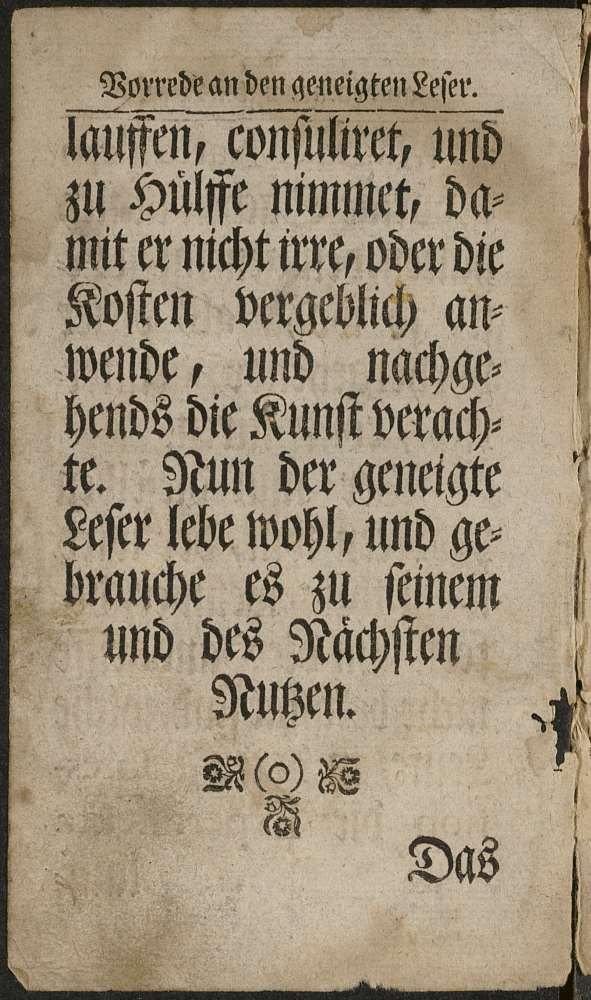 Vorrede an den geneigten Leſer.
lauffen, conſuliret, und
zu Hülffe nimmet, da⸗
mit er nicht irre, oder die
Koſten vergeblich an⸗
wende, und nachge⸗
hends die Kunſt verach⸗
te. Nun der geneigte
Leſer lebe wohl, und ge⸗
brauche es zu ſeinem
und des Nächſten
Nutzen.
(o)
Das